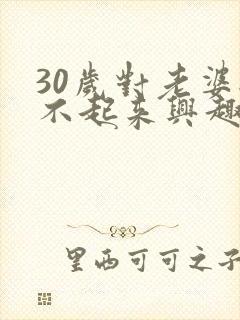 30歲對老婆
不起來興趣
里西可可之子